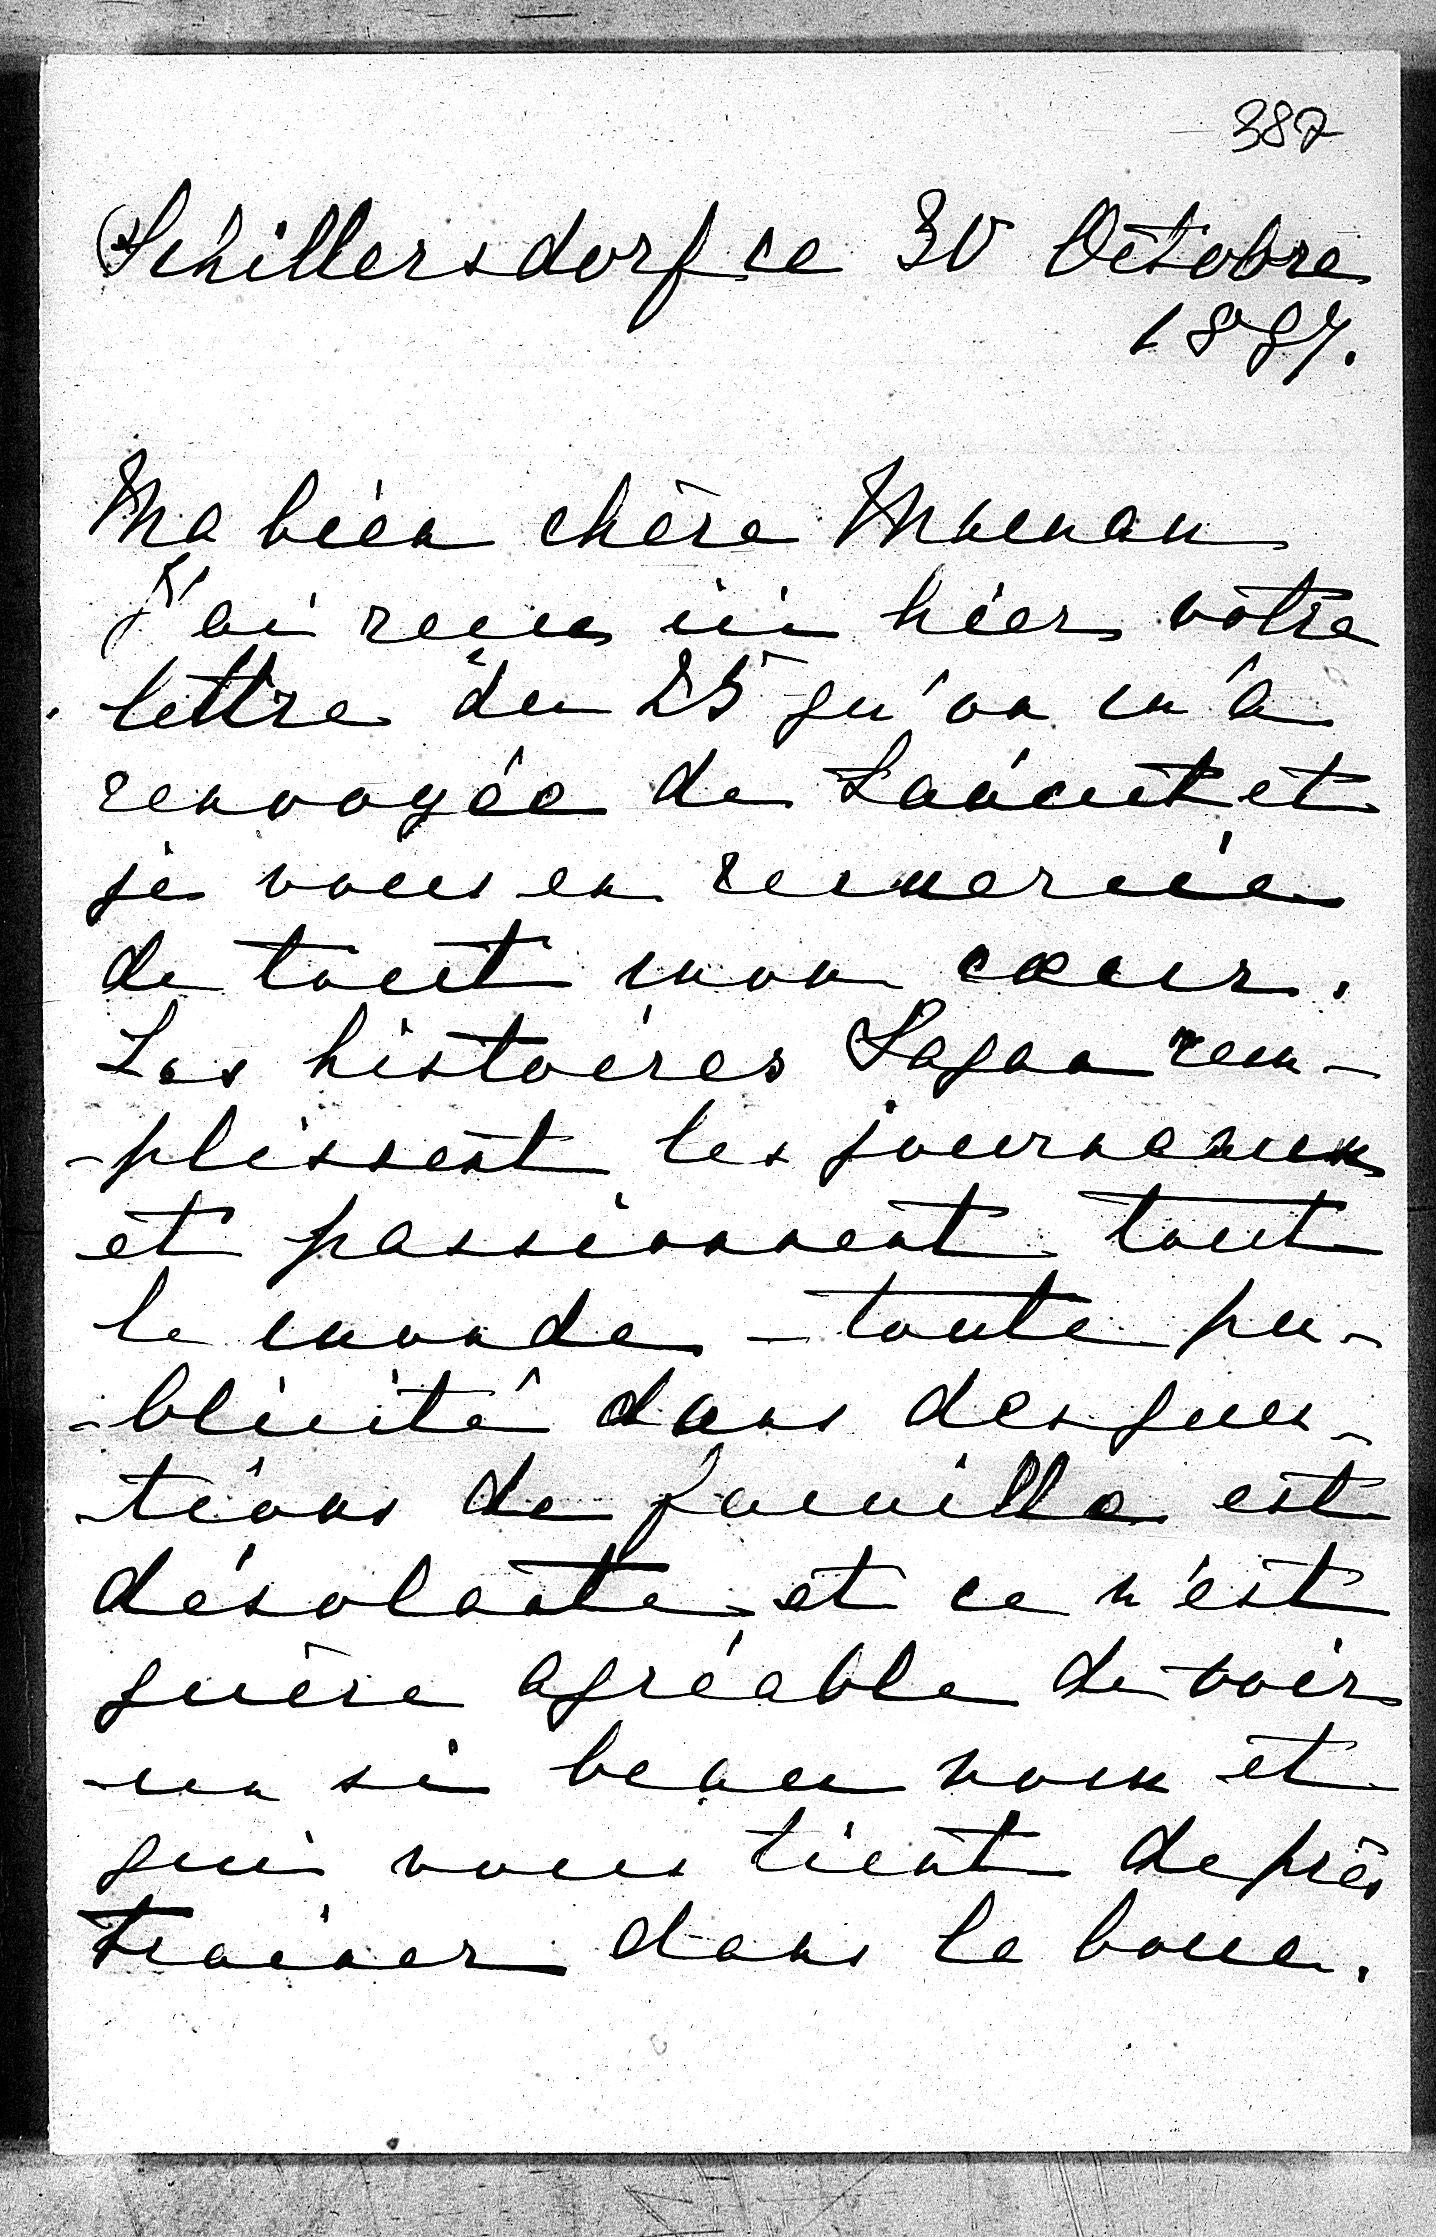 387
Schillersdorf ce 30 Octobre
1897.
Ma bien chère Maman
J'ai reçu ici hier votre
lettre du 25 qu'on m'a
renvoyée de Łańcut et
je vous en remercie
de tout mon cœur.
Les histoires Sagan rem-
-plissent les journeaux
et passionnent tout
le monde - toute pu-
-blicité dans des ques-
-tions de famille est
désolante et ce n'est
guère agréable de voir
un si beau nom et
qui vous tient de près
trainer dans la boue.